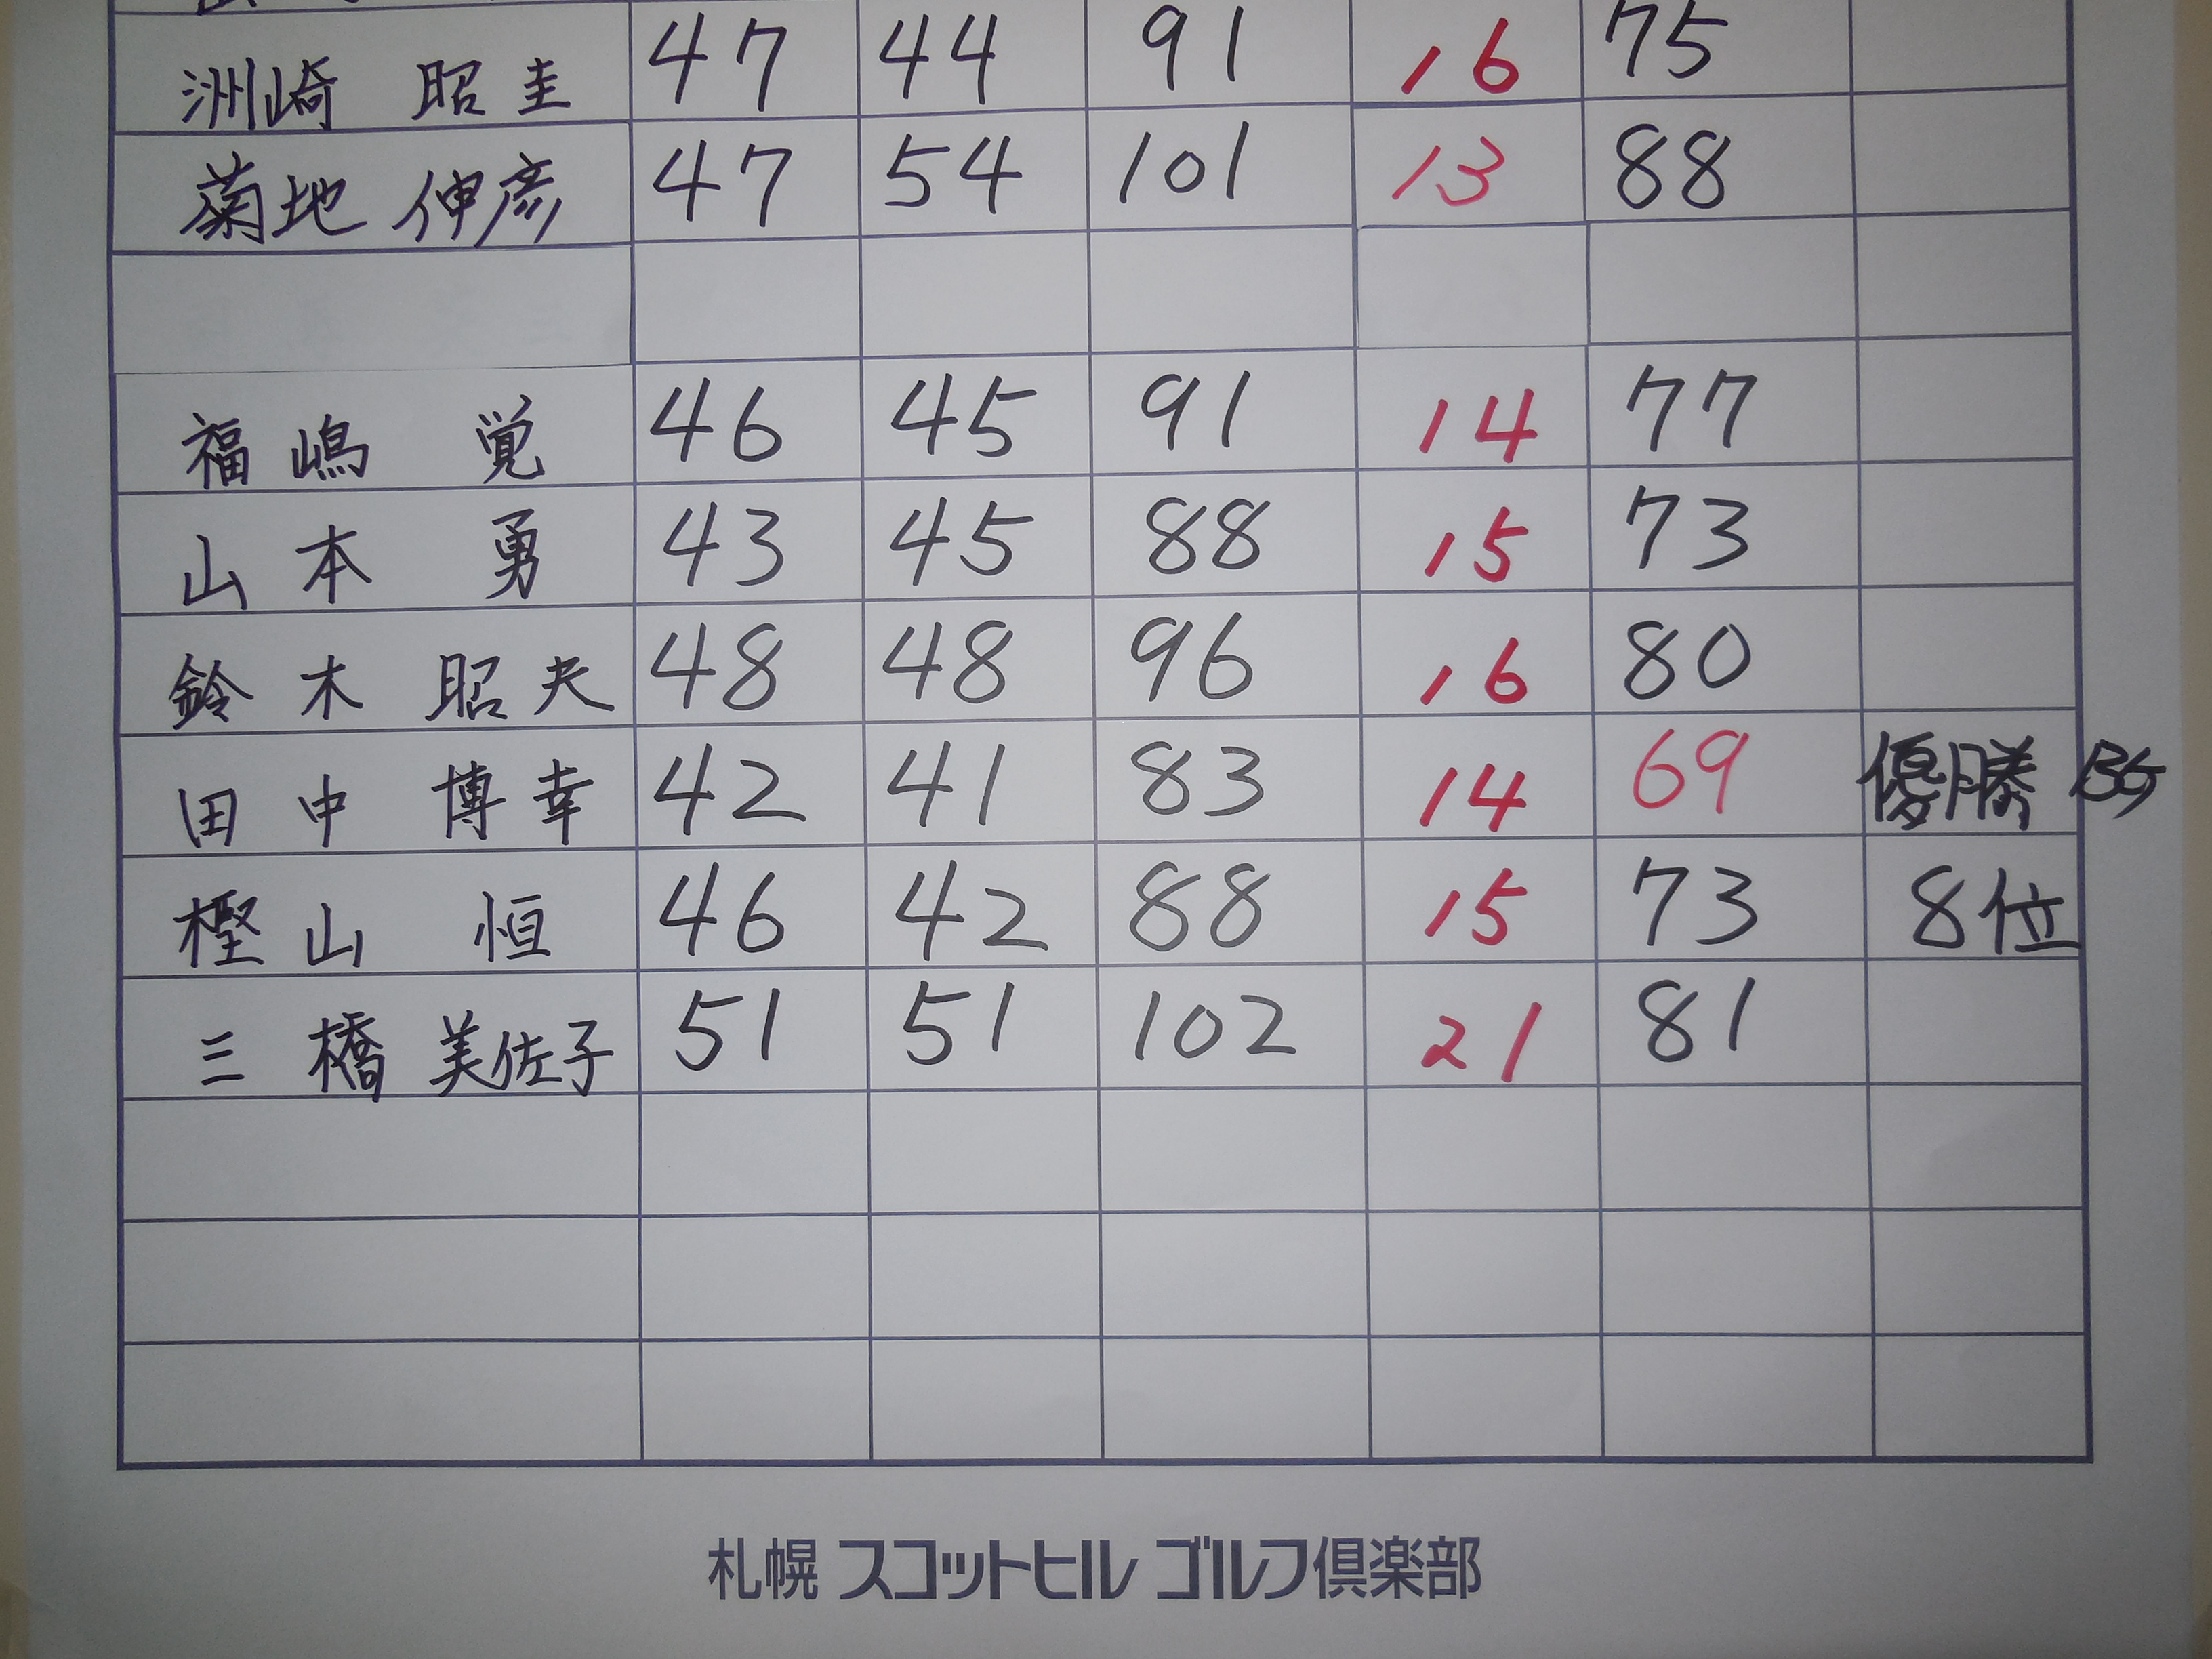 洲崎 昭圭 47 44 91 16 75
菊地 伸彦 47 54 101 13 88
福嶋 覚 46 45 91 14 77
山本 勇 43 45 88 15 73
鈴木 昭夫 48 48 96 16 80
田中 博幸 42 41 83 14 69 優勝 BG
樫山 恒 46 42 88 15 73 8位
三橋 美佐子 51 51 102 21 81
札幌 スコットヒル ゴルフ倶楽部